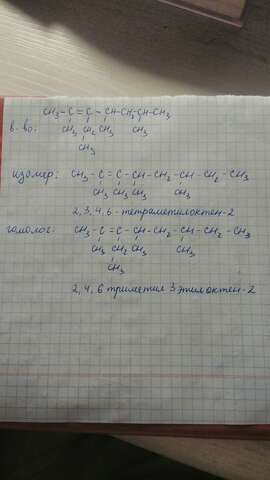 CH₃ - C = C - CH - CH₂ CH - CH₃
в-во: CH₃ CH₂ CH₃ CH₃
CH₃
изомер: CH₃ - C = C - CH - CH₂ - CH - CH₂ - CH₃
CH₃ CH₃ CH₃ CH₃
2, 3, 4, 6 - тетраметилоктен-2
гомолог: CH₃ - C = C - CH - CH₂ - CH - CH₂ - CH₃
CH₃ CH₂ CH₃ CH₃
CH₃
2, 4, 6 триметил 3 этилоктен-2